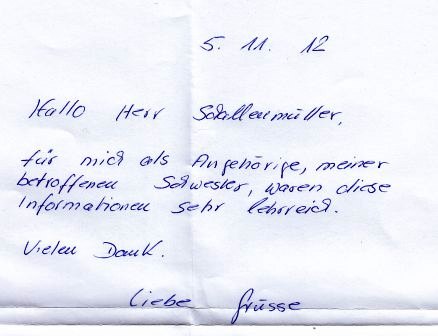 5. 11. 12
Hallo Herr Schallenmüller,
für mich als Angehörige, meiner
betroffenen Schwester, waren diese
Informationen sehr lehrreich.
Vielen Dank.
Liebe Grüsse